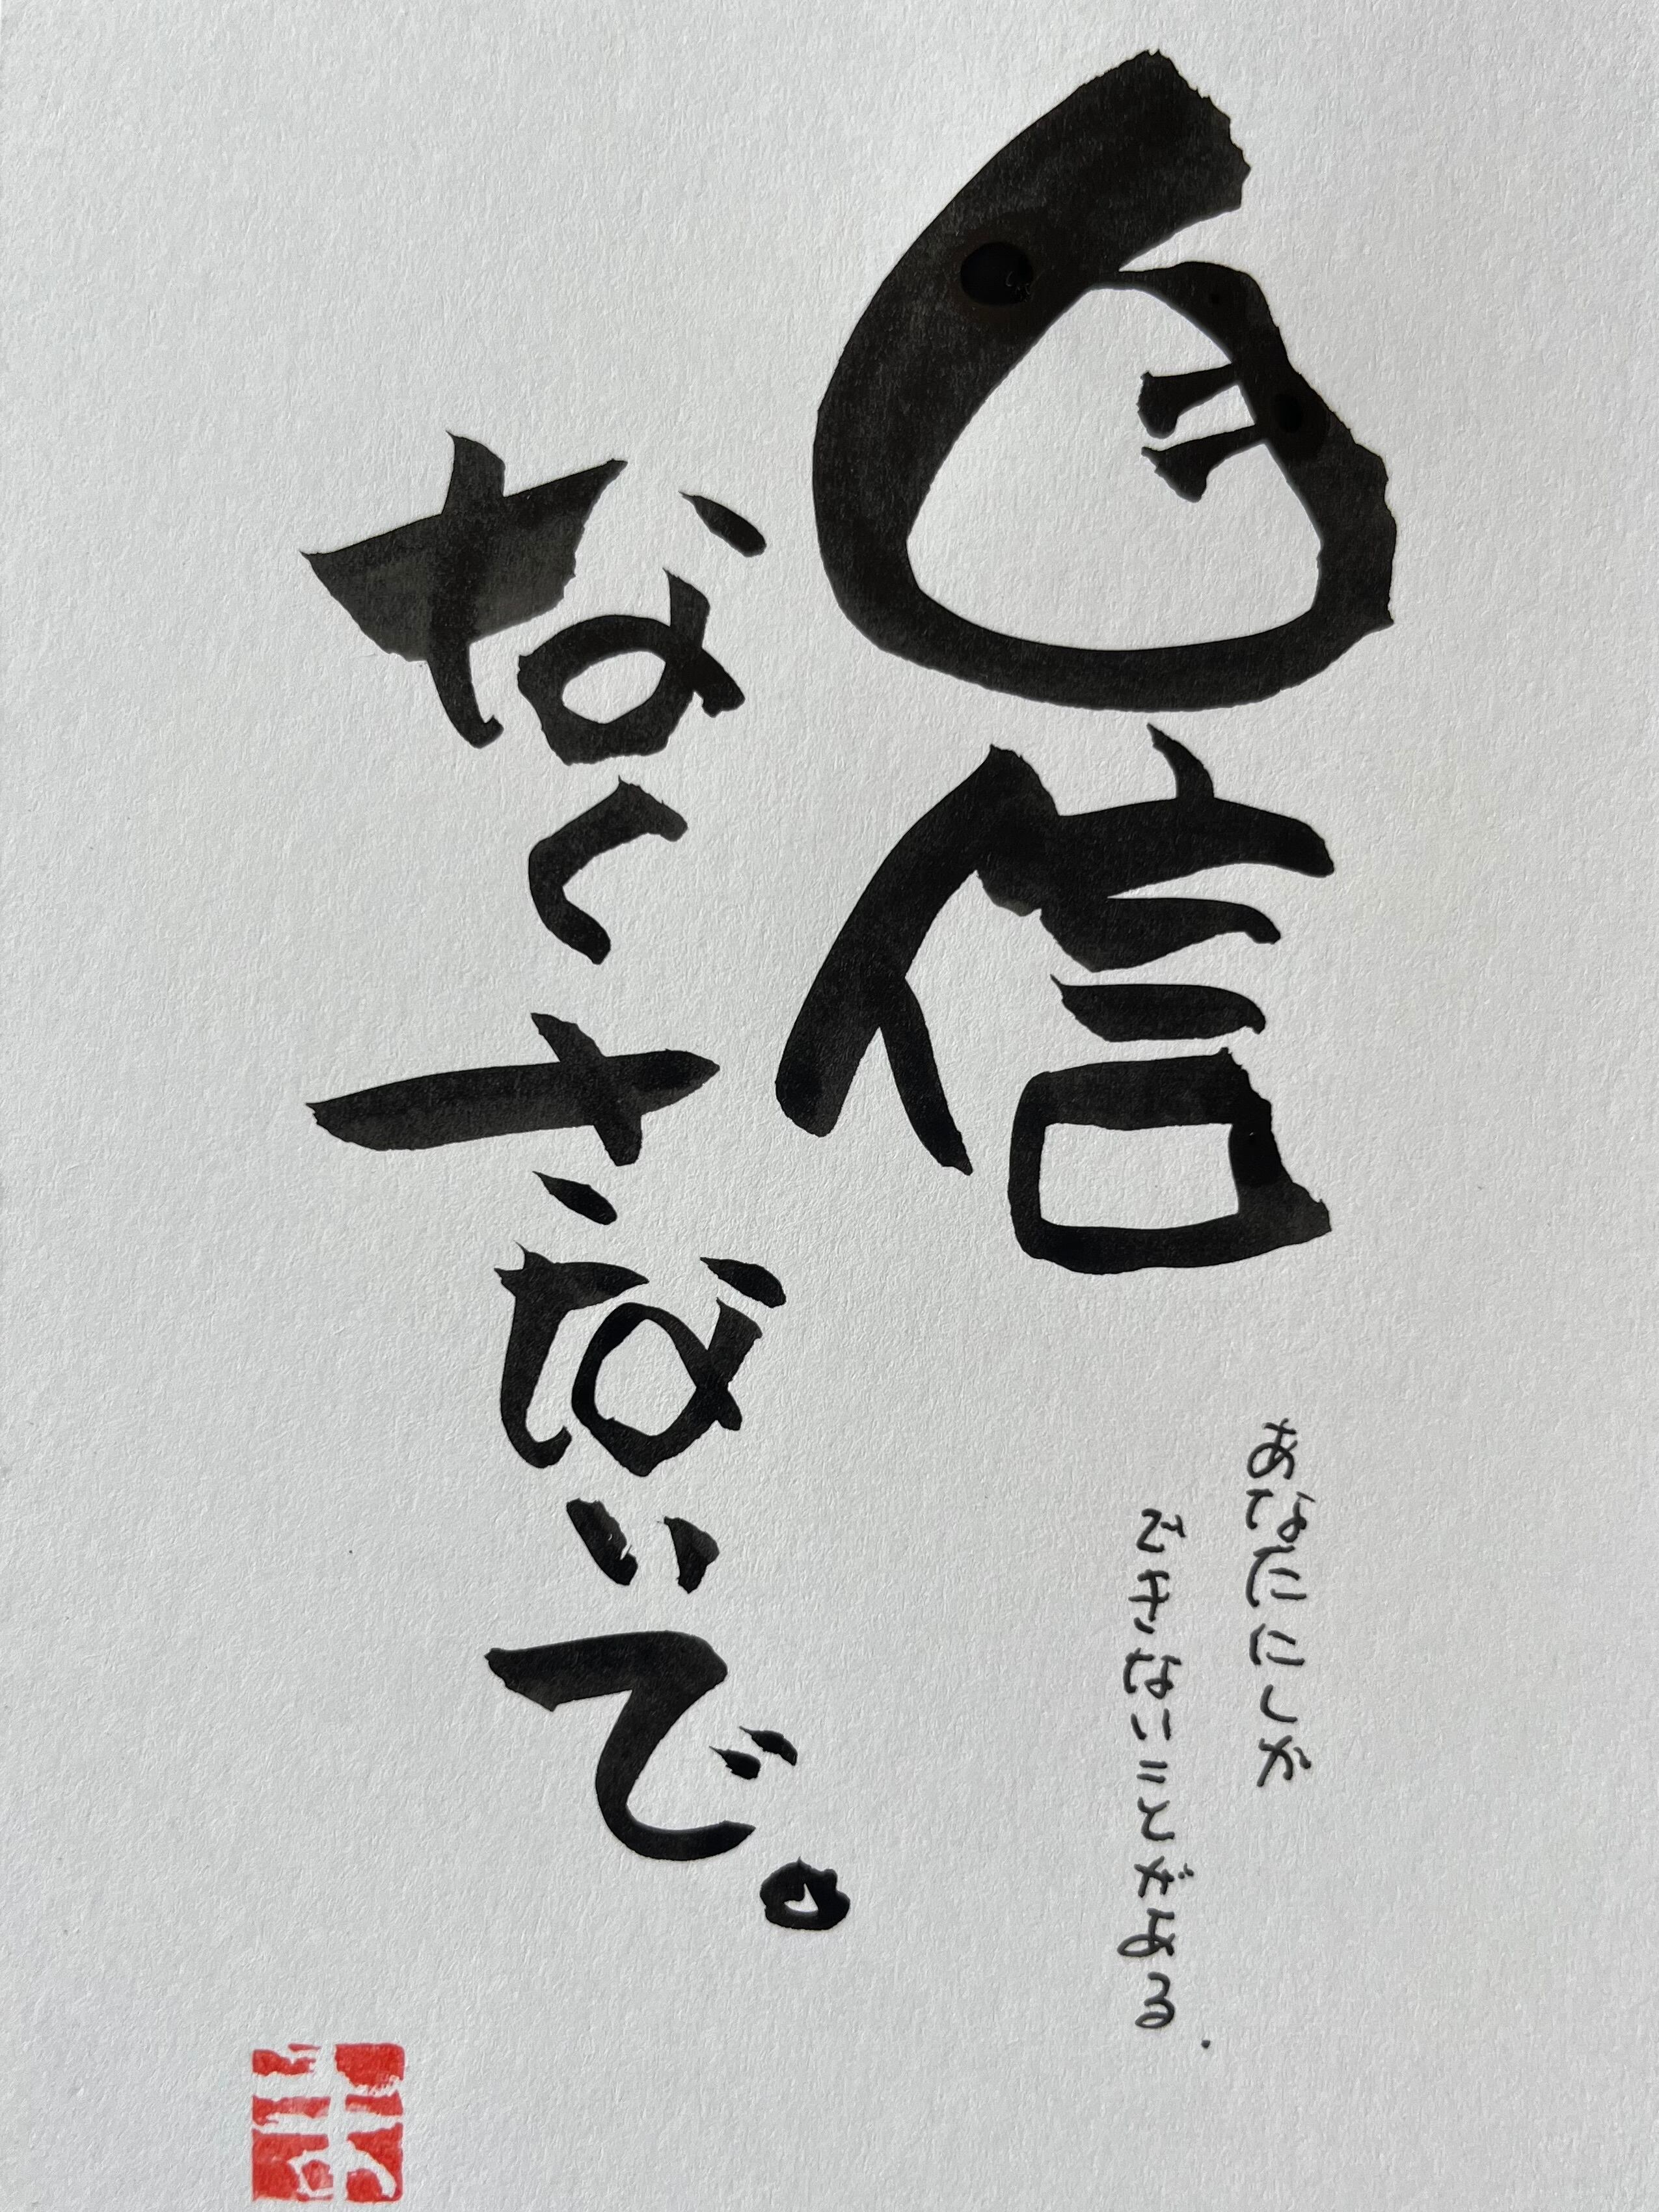 自信
なくさないで。
あなたにしか
できないことがある.